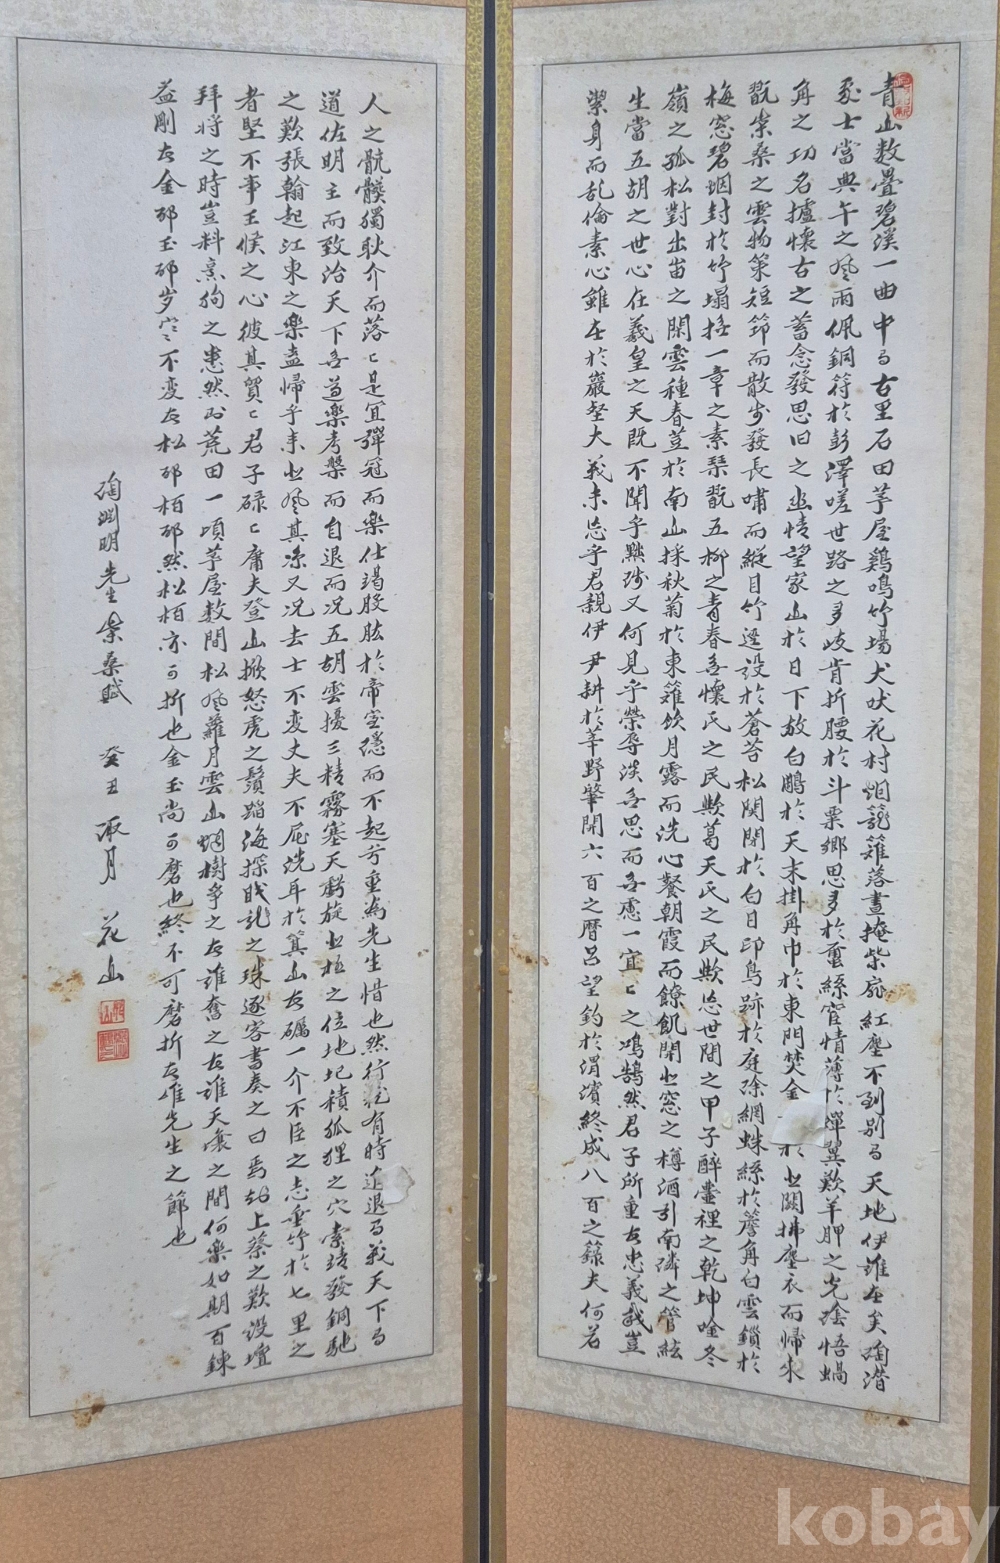 青山數疊碧溪一曲中有古里石田茅屋鷄鳴竹場犬吠花村烟籠籬落晝掩柴扉紅塵不到別有天地伊誰在矣陶潛
豪士當典午之風雨佩銅符於彭澤嗟世路之多岐肯折腰於斗粟鄕思多於蠶絲宦情薄於蟬翼歎羊胛之光陰悟蝸
角之功名攄懷古之蓄念發思旧之幽情望家山於日下放白鷳於天末掛角巾於東門焚金 於北闕拂塵衣而歸來
翫柴桑之雲物策短筇而散步發長嘯而縱目竹逕設於蒼苔松関閉於白日印鳥跡於庭除網蛛絲於簷角白雲鎖於
梅窓碧烟封於竹塌搖一章之素琴翫五柳之青春無懷氏之民歟葛天氏之民歟忘世間之甲子醉壺裡之乾坤唫冬
嶺之孤松對出岫之閑雲種春荳於南山採秋菊於東籬飮月露而洗心餐朝霞而療飢開北窓之樽酒引南隣之管絃
生當五胡之世心在羲皇之天既不聞乎黜陟又何見乎榮辱淡無思而無慮一宜宜之鴻鵠然君子所重者忠義哉豈
潔身而乱倫素心雖在於巖壑大義未忘乎君親伊尹耕於莘野肇開六百之曆呂望釣於渭濱終成八百之籙夫何若
人之骯髒獨耿介而落〻是宜彈冠而樂仕竭股肱於帝室隱而不起兮重為先生惜也然行 有時進退有義天下有
道佐明主而致治天下無道樂考槃而自退而况五胡雲擾三精霧塞天虧旋北極之位地圮積狐狸之穴索靖發銅駝
之歎張翰起江東之樂盍歸乎来北風其凉又况去士不変丈夫不屈洗耳於箕山者礪一介不臣之志垂竹於七里之
者堅不事王侯之心彼其貿〻君子碌〻庸夫登山掀怒虎之鬚蹈海探眠龍之珠逐客書奏之曰焉知上蔡之歎設壇
拜將之時豈料烹狗之患然則荒田一頃茅屋数間松風蘿月雲山烟樹爭之者誰奪之者誰天壤之間何樂如期百鍊
益剛者金耶玉耶岁寒不変者松耶柏耶然松柏亦可折也金玉尚可磨也終不可磨折者唯先生之節也
陶淵明先生柴桑賦 癸丑 月 花山
kobay